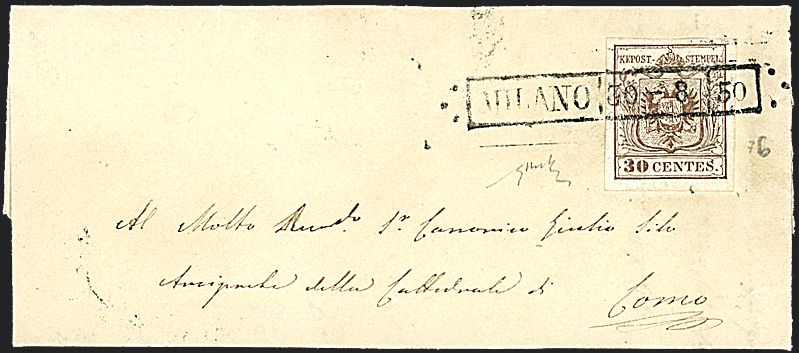 KKPOST-STEMPEL
MILANO 30-8 50
30 CENTES.
76
Al Molto Revdo. Sr. Canonico Giulio
Arciprete della Cattedrale di Como